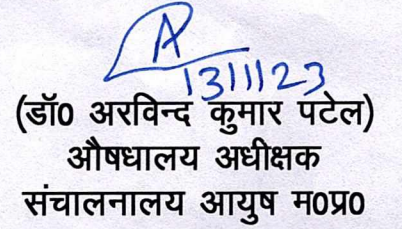 A
13/11/23
(डॉ0 अरविन्द कुमार पटेल)
औषधालय अधीक्षक
संचालनालय आयुष म0प्र0